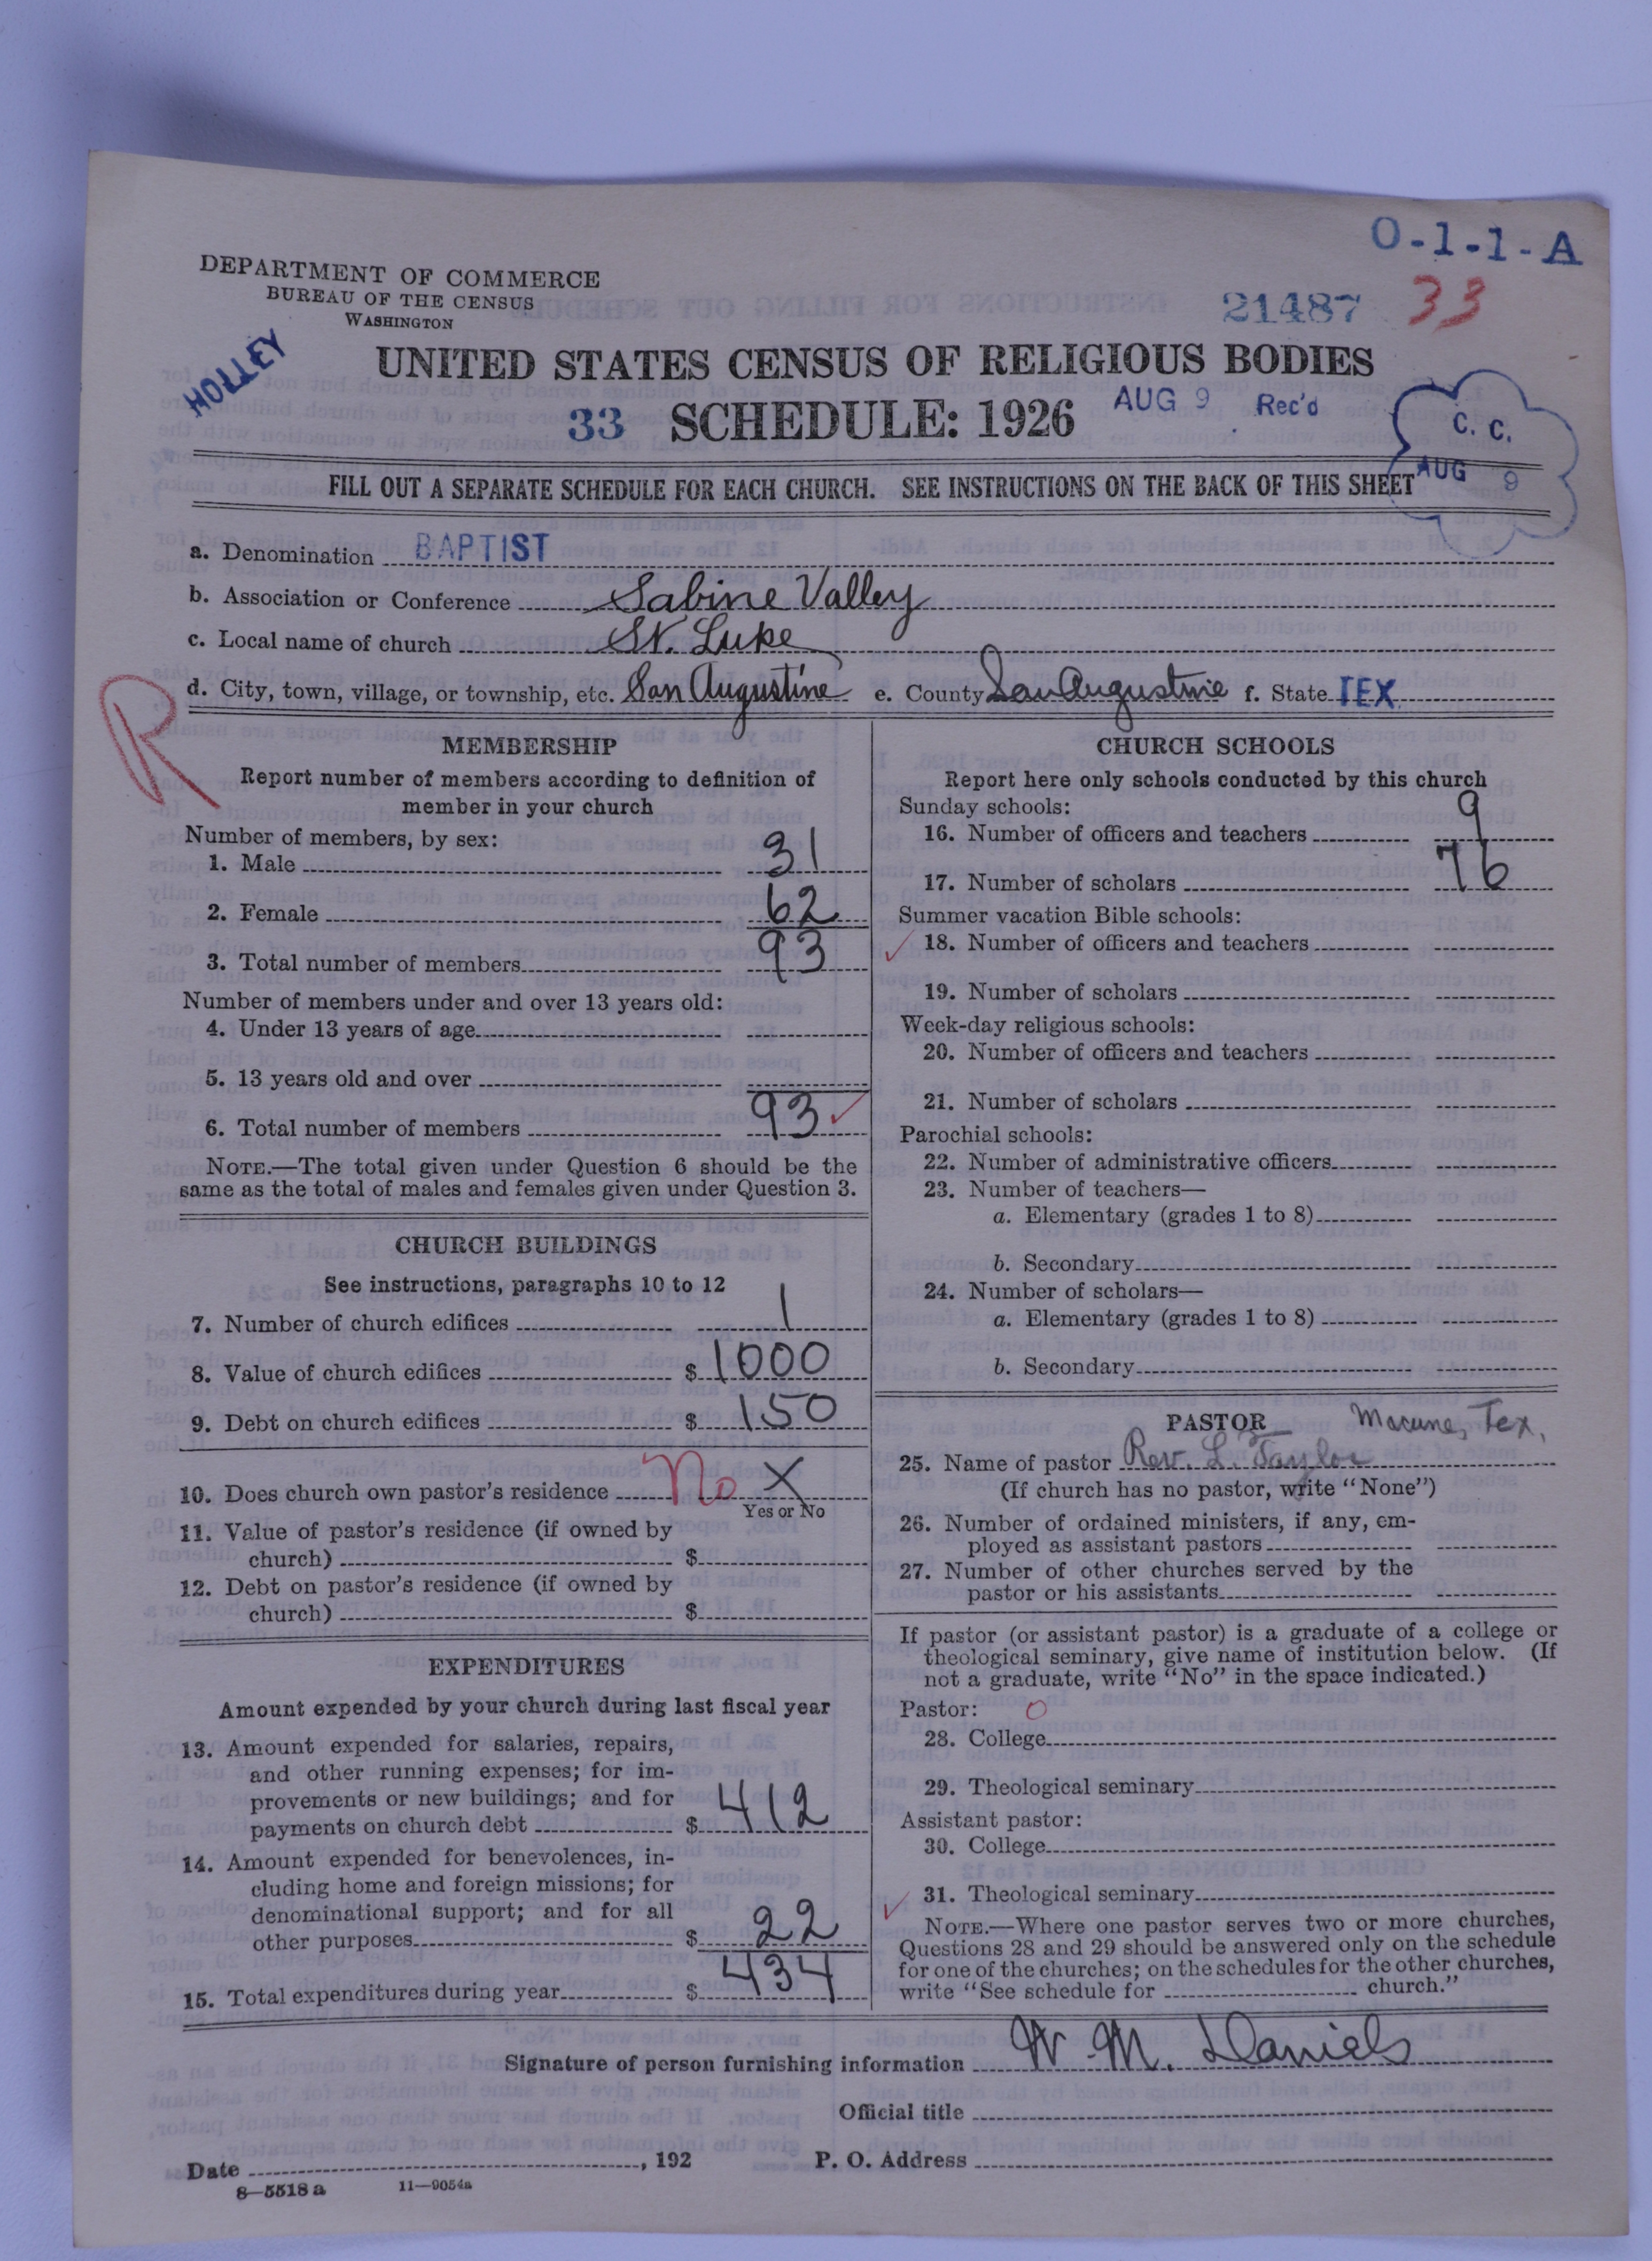 O-1-1-A
DEPARTMENT OF COMMERCE
BUREAU OF THE CENSUS
WASHINGTON
21487 33
HOLLEY
UNITED STATES CENSUS OF RELIGIOUS BODIES
33 SCHEDULE: 1926 AUG 9 Rec'd
C. C.
AUG 9
FILL OUT A SEPARATE SCHEDULE FOR EACH CHURCH. SEE INSTRUCTIONS ON THE BACK OF THIS SHEET
a. Denomination BAPTIST
b. Association or Conference Sabine Valley
c. Local name of church St. Luke
d. City, town, village, or township, etc. San Augustine e. County San Augustine f. State TEX.
R
MEMBERSHIP
Report number of members according to definition of
member in your church
Number of members, by sex:
1. Male 31
2. Female 62
3. Total number of members 93
Number of members under and over 13 years old:
4. Under 13 years of age
5. 13 years old and over
6. Total number of members 93 ✓
NOTE.—The total given under Question 6 should be the
same as the total of males and females given under Question 3.
CHURCH BUILDINGS
See instructions, paragraphs 10 to 12
7. Number of church edifices 1
8. Value of church edifices $ 1000
9. Debt on church edifices $ 150
10. Does church own pastor's residence No X
Yes or No
11. Value of pastor's residence (if owned by
church) $
12. Debt on pastor's residence (if owned by
church) $
EXPENDITURES
Amount expended by your church during last fiscal year
13. Amount expended for salaries, repairs,
and other running expenses; for im-
provements or new buildings; and for
payments on church debt $ 412
14. Amount expended for benevolences, in-
cluding home and foreign missions; for
denominational support; and for all
other purposes $ 22
15. Total expenditures during year $ 434
CHURCH SCHOOLS
Report here only schools conducted by this church
Sunday schools:
16. Number of officers and teachers 9
17. Number of scholars 76
Summer vacation Bible schools:
✓ 18. Number of officers and teachers
19. Number of scholars
Week-day religious schools:
20. Number of officers and teachers
21. Number of scholars
Parochial schools:
22. Number of administrative officers
23. Number of teachers—
a. Elementary (grades 1 to 8)
b. Secondary
24. Number of scholars—
a. Elementary (grades 1 to 8)
b. Secondary
PASTOR Macune, Tex.
25. Name of pastor Rev. L. Taylor
(If church has no pastor, write "None")
26. Number of ordained ministers, if any, em-
ployed as assistant pastors
27. Number of other churches served by the
pastor or his assistants
If pastor (or assistant pastor) is a graduate of a college or
theological seminary, give name of institution below. (If
not a graduate, write "No" in the space indicated.)
Pastor: O
28. College
29. Theological seminary
Assistant pastor:
30. College
✓ 31. Theological seminary
NOTE.—Where one pastor serves two or more churches,
Questions 28 and 29 should be answered only on the schedule
for one of the churches; on the schedules for the other churches,
write "See schedule for church."
Signature of person furnishing information W. M. Daniels
Official title
Date , 192 P. O. Address
8—5518 a 11—9054a